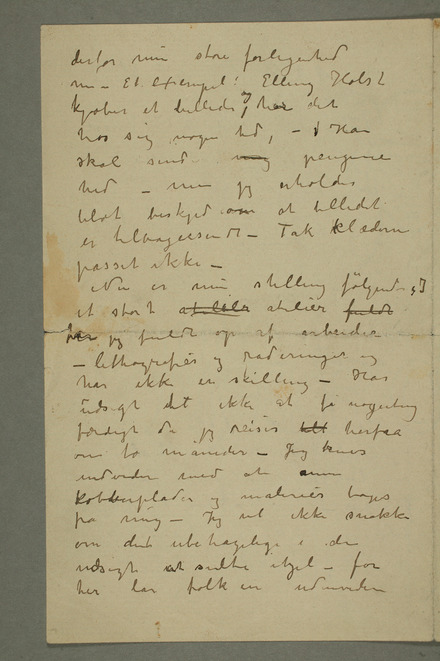 derfor min store forlegenhed
nu – Et Exempel! Elling Holst
kjøber et billede, og har det
hos sig nogen tid, – Han
skal sende mig pengene
ned – men jeg erholder
blot beskjed om at billedet
er tilbagesendt – Tak klæderne
passet ikke –
Nu er min stilling følgende,
et stort atelier atelier fuldt
har jeg fuldt op af arbeider
– lithografier og raderinger og
har ikke en skilling – Har
udsigt til ikke at få nogenting
færdigt da jeg reiser herfra
om to måneder – Jeg trues
endvidere med at mine
kobberplader og malerier tages
fra mig – Jeg vil ikke snakke
om det ubehagelige i den
udsigt at sulte ihjel – for
her lar folk en udenvidere